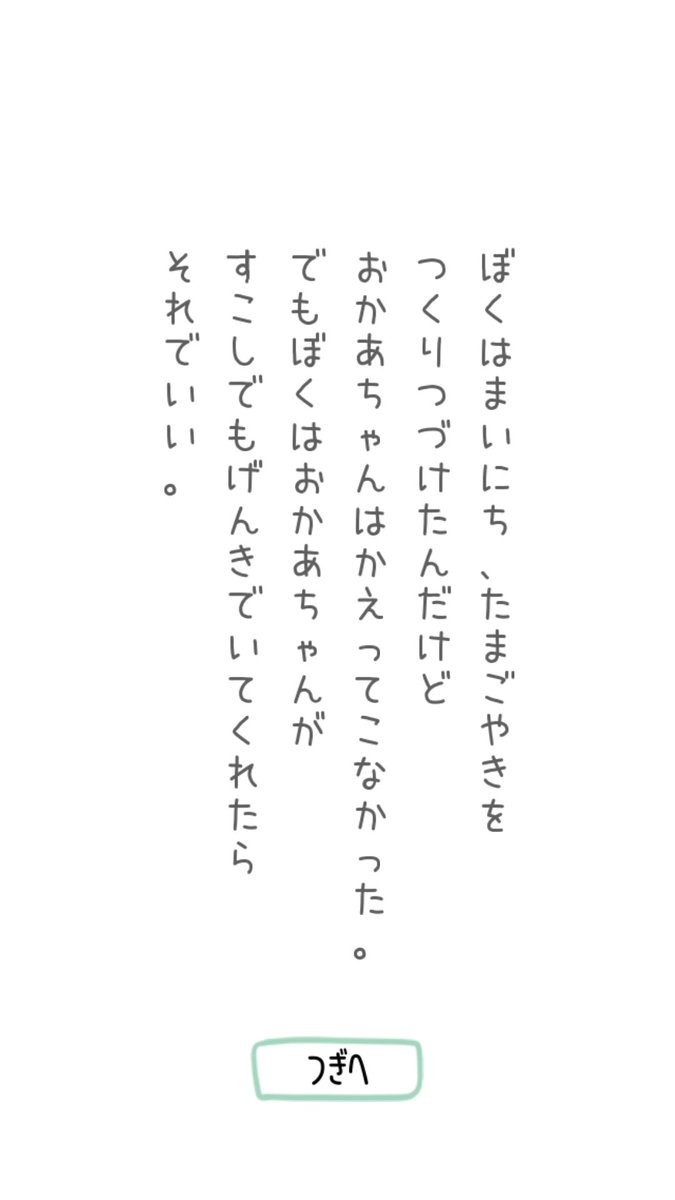 ぼくはまいにち、たまごやきを
つくりつづけたんだけど
おかあちゃんはかえってこなかった。
でもぼくはおかあちゃんが
すこしでもげんきでいてくれたら
それでいい。
つぎへ